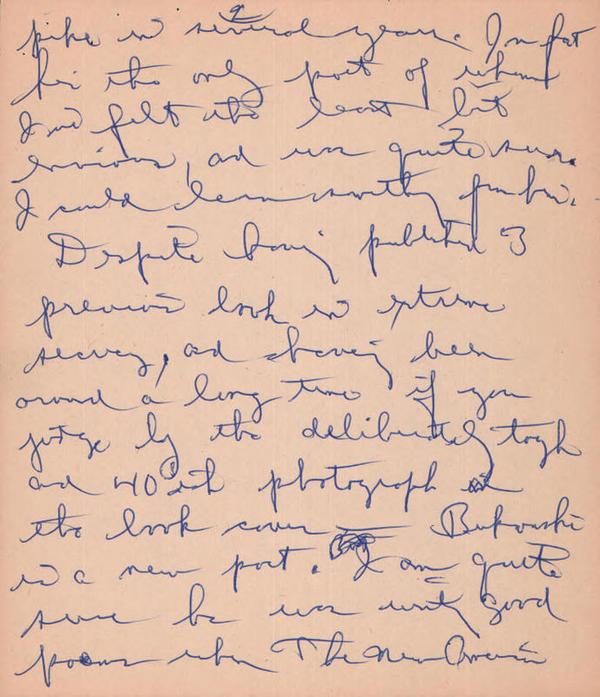 in several years. In fact
he is the only poet of whom
I've felt the least bit
envious, and was quite sure
I could learn something from him.
Despite having published 3
previous books in extreme
secrecy, and having been
around a long time if you
judge by the deliberately tough
and 40ish photograph on
the book cover — Bukowski
is a new poet. I am quite
sure he was writing good
poems when The New American